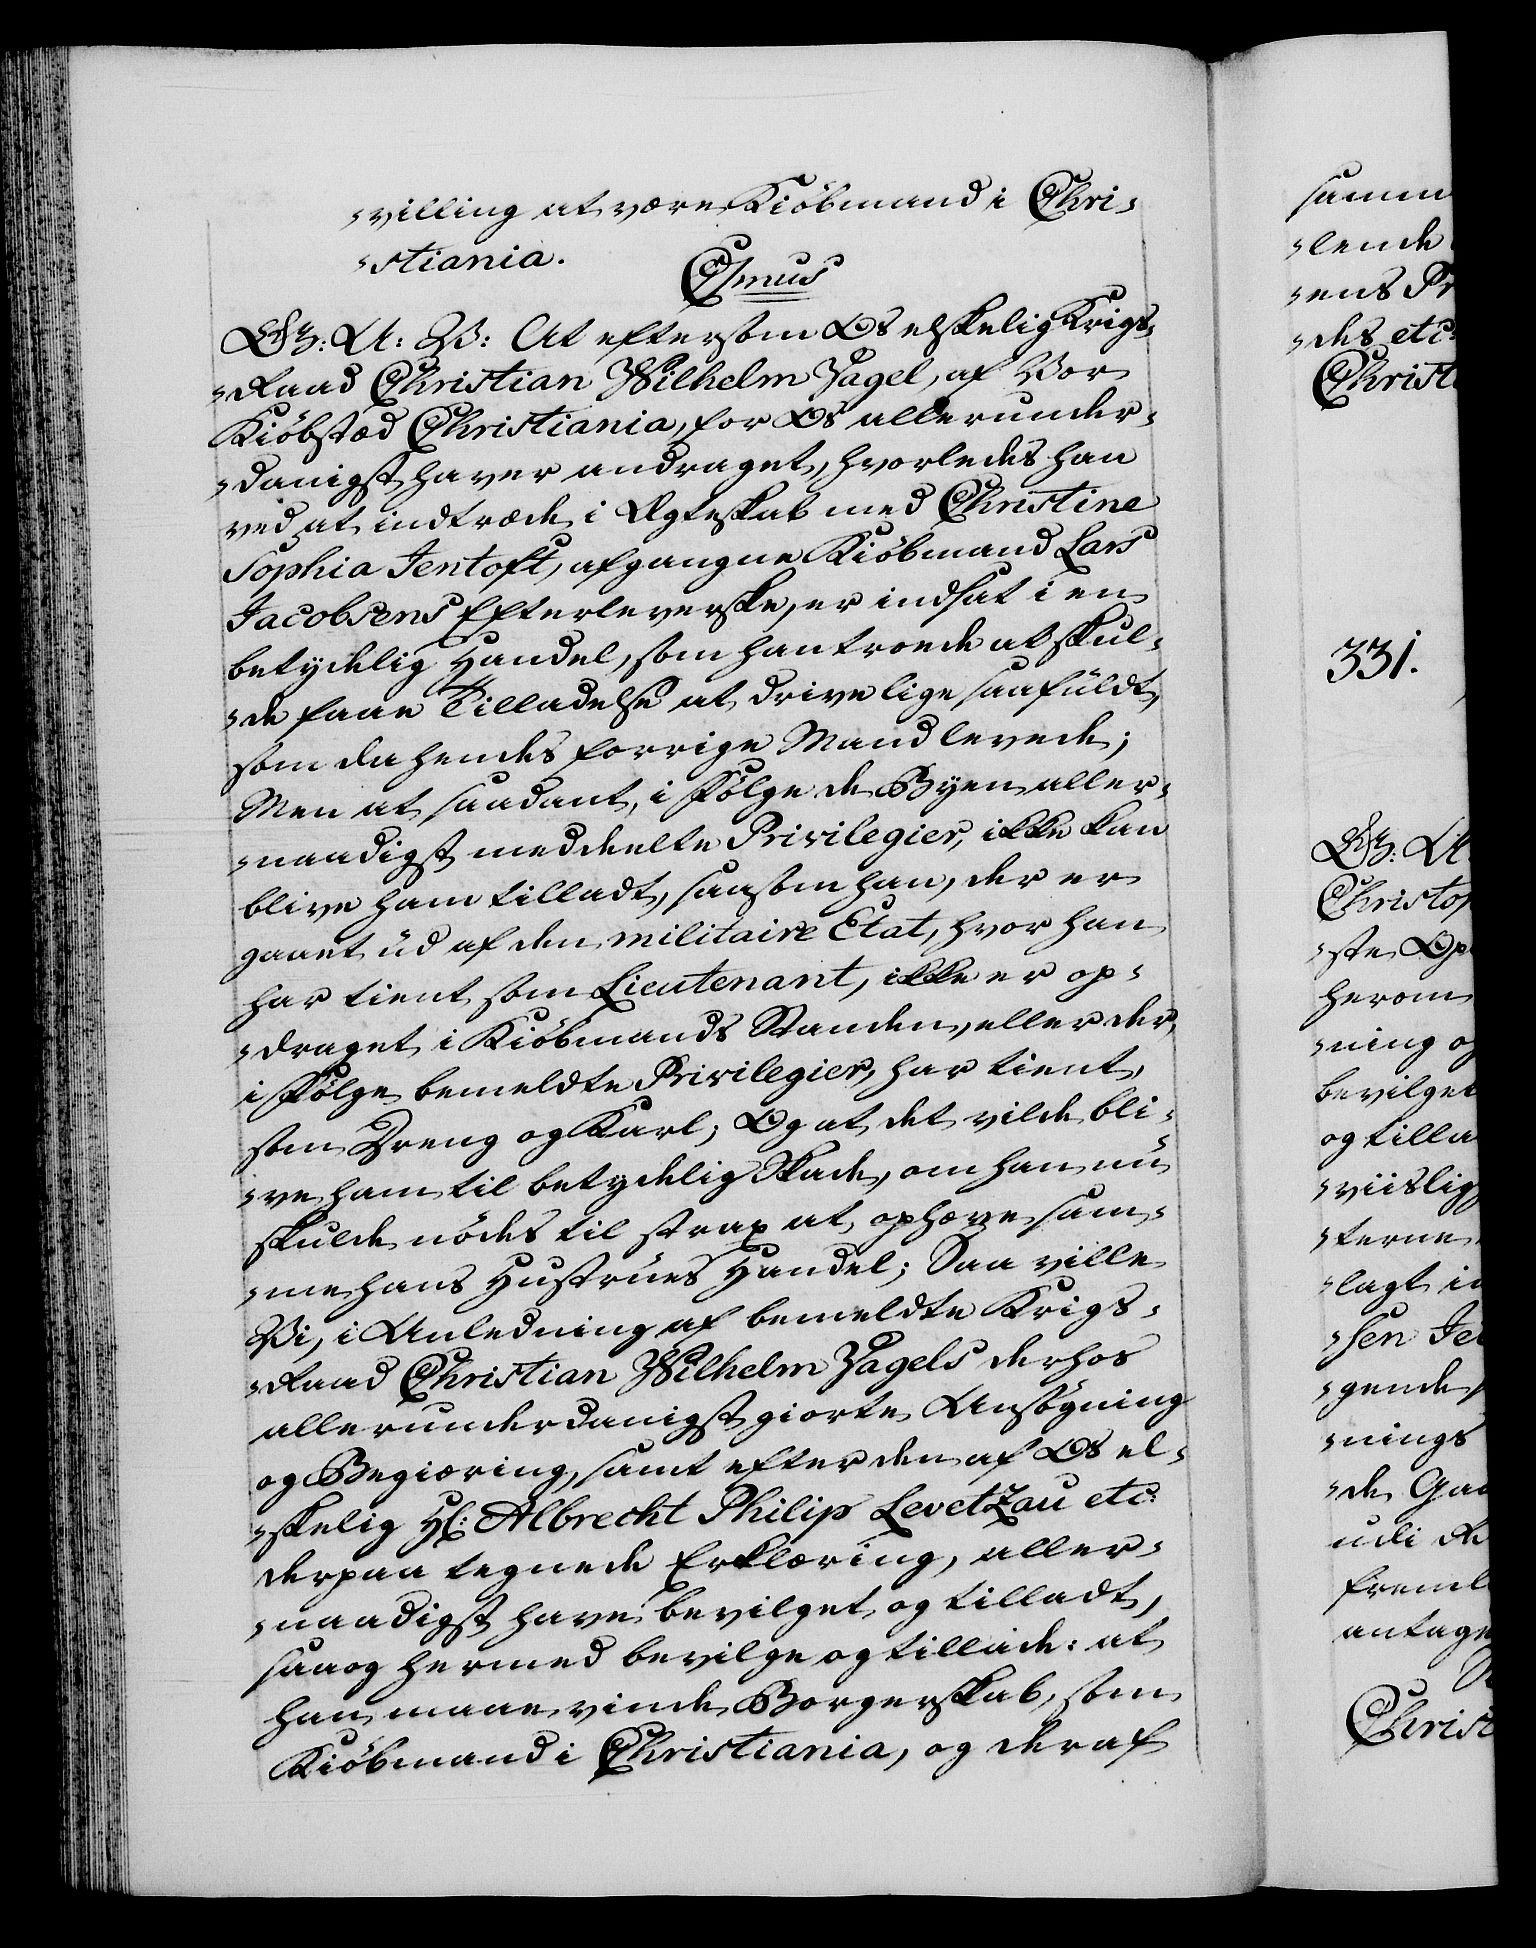 -villing at være Kiöbmand i Chri-
-stiania.
C7mus
G: A: V: At eftersom Os elskelig Krigs-
-Raad Christian Wilhelm Zagel, af Vor
Kiöbstæd Christiania, for Os allerunder-
-danigst haver andraget, hvorledes han
ved at indtræde i Ægteskab med Christine
Sophia Jentoft, afgangne Kiöbmand Lars
Jacobsens Efterleverske, er indsat i en
betydelig Handel, som han troede at skul-
-de faae Tilladelse at drive lige saa fuldt,
som da hendes forrige Mand levede;
Men at saadant, i Følge de Byen aller-
-naadigst meddeelte Privilegier, ikke kan
blive ham tilladt, saasom han, der er
gaaet ud af den militaire Etat, hvor han
har tient som Lieutenant, ikke er op-
-draget i Kiöbmands Standen, eller der,
i Følge bemeldte Privilegier, har tient,
som Dreng og Karl; Og at det vilde bli-
-ve ham til betydelig Skade, om han nu
skulde nödes til strax at ophæve sam-
-me hans Hustrues Handel; Saa ville
Vi, i Anledning af bemeldte Krigs-
-Raad Christian Wilhelm Zagels derhos
allerunderdanigst giorte Ansögning
og Begiæring, samt efter den af Os el-
-skelig Hl: Albrecht Philip Levetzau etc:
derpaa tegnede Erklæring, aller-
-naadigst have bevilget og tilladt,
saa og hermed bevilge og tillade: at
han maae vinde Borgerskab, som
Kiöbmand i Christiania, og deraf
samm
-lende
-ens Pr
-des etc:
Christ
331.
G: A
Christop
-ste Op
herom
-ning og
bevilget
og tilla
-viislig
-terne
-lagt in
-sen Je
-gende
-nings
-de Gaa
udi de
freml
antage
Christ